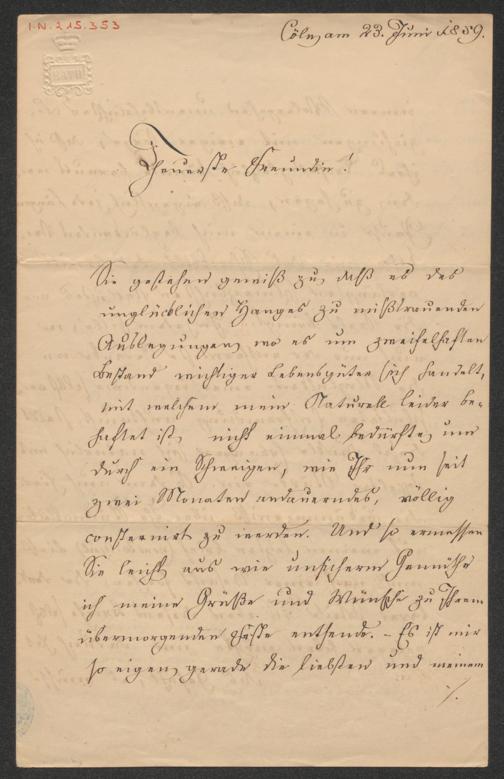 I.N. 215.353
BATH
Cöln, am 23. Juni 1859.
Theuerste Freundin!
Sie gestehen gewiß zu, daß es des
unglücklichen Hanges zu mißtrauenden
Auslegungen, wo es um zweifelhaften
Bestand wichtiger Lebensgüter sich handelt,
mit welchem mein Naturell leider be-
haftet ist, nicht einmal bedürfte, um
durch ein Schweigen, wie Ihr nun seit
zwei Monaten andauerndes, völlig
consternirt zu werden. Und so ermessen
Sie leicht aus wie unsicherm Gemüthe
ich meine Grüße und Wünsche zu Ihrem
übermorgenden Feste entsende. – Es ist mir
so eigen, gerade die liebsten und meinem
./.